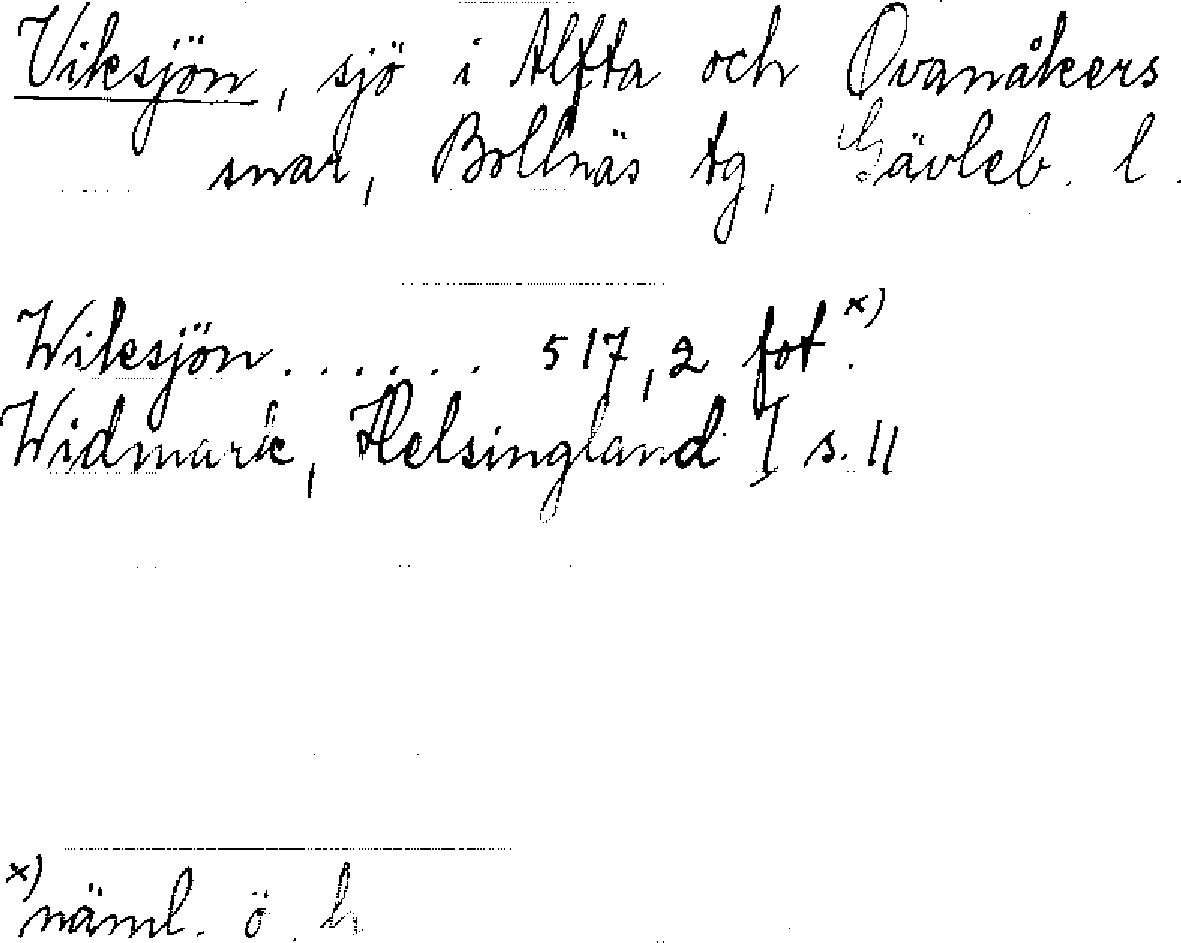 Viksjön, sjö i Alfta och Ovanåkers
snar, Bollnäs tg, Gävleb. l.
Wiksjön...... 517,2 fot.x)
Widmark, Helsingland I s. 11
x) näml. ö. h